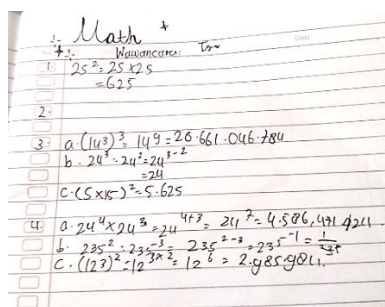 Math
1. 25² = 25 × 25
= 625
2.
3. a. (14³)³ = 14⁹ = 20.661.046.784
b. 24³ : 24² = 24³⁻²
= 24
c. (5 × 15)² = 5.625
4. a. 24⁴ × 24³ = 24⁴⁺³ = 24⁷ = 4.586,471,424
b. 235² : 235³ = 235²⁻³ = 235⁻¹ = 1/235
c. (12³)² = 12³ˣ² = 12⁶ = 2.985.984.